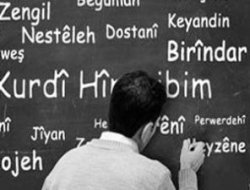 Zengil Beguman Keyandin
Nestêleh Dostanî
weş Birîndar
Kurdî Hîn bibim
Jîyan Perwerdehî
ojeh eyzêne